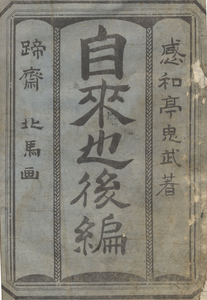 感和亭鬼武著
自來也後編
蹄齋北馬画